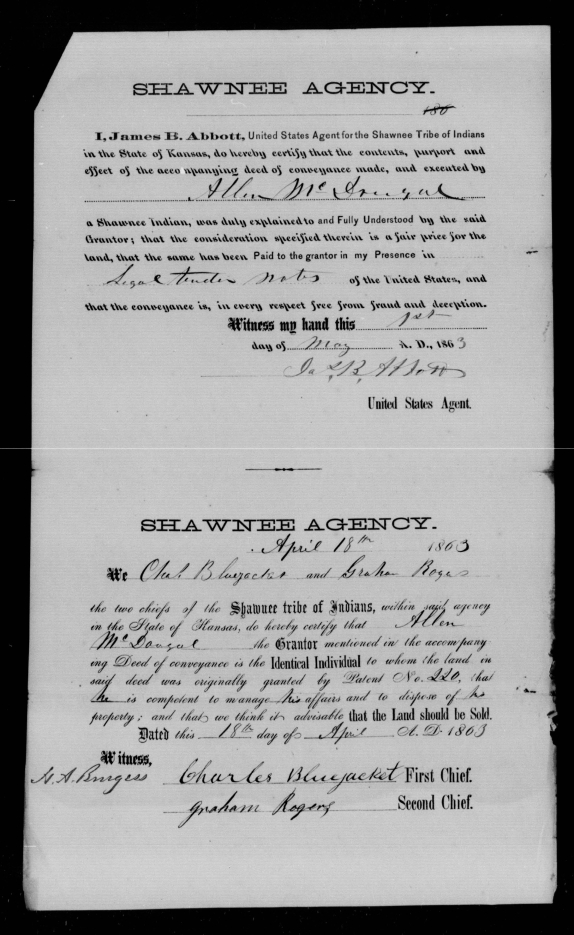 SHAWNEE AGENCY.
186
I, James B. Abbott, United States Agent for the Shawnee Tribe of Indians
in the State of Kansas, do hereby certify that the contents, purport and
effect of the acco npanying deed of conveyance made, and executed by
Allen McDougal
a Shawnee Indian, was duly explained to and Fully Understood by the said
Grantor; that the consideration specified therein is a fair price for the
land, that the same has been Paid to the grantor in my Presence in
Legal tender notes of the United States, and
that the conveyance is, in every respect free from fraud and deception.
Witness my hand this 1st
day of May A. D., 1863
Jas. B. Abbott
United States Agent.
SHAWNEE AGENCY.
April 18th 1863
We Chas Bluejacket and Graham Rogers
the two chiefs of the Shawnee tribe of Indians, within said agency
in the State of Kansas, do hereby certify that Allen
McDougal the Grantor mentioned in the accompany
ing Deed of conveyance is the Identical Individual to whom the land in
said deed was originally granted by Patent No. 220, that
he is competent to manage his affairs and to dispose of his
property; and that we think it advisable that the Land should be Sold.
Dated this 18th day of April A. D. 1863
Witness,
H. A. Burgess Charles Bluejacket First Chief.
Graham Rogers Second Chief.